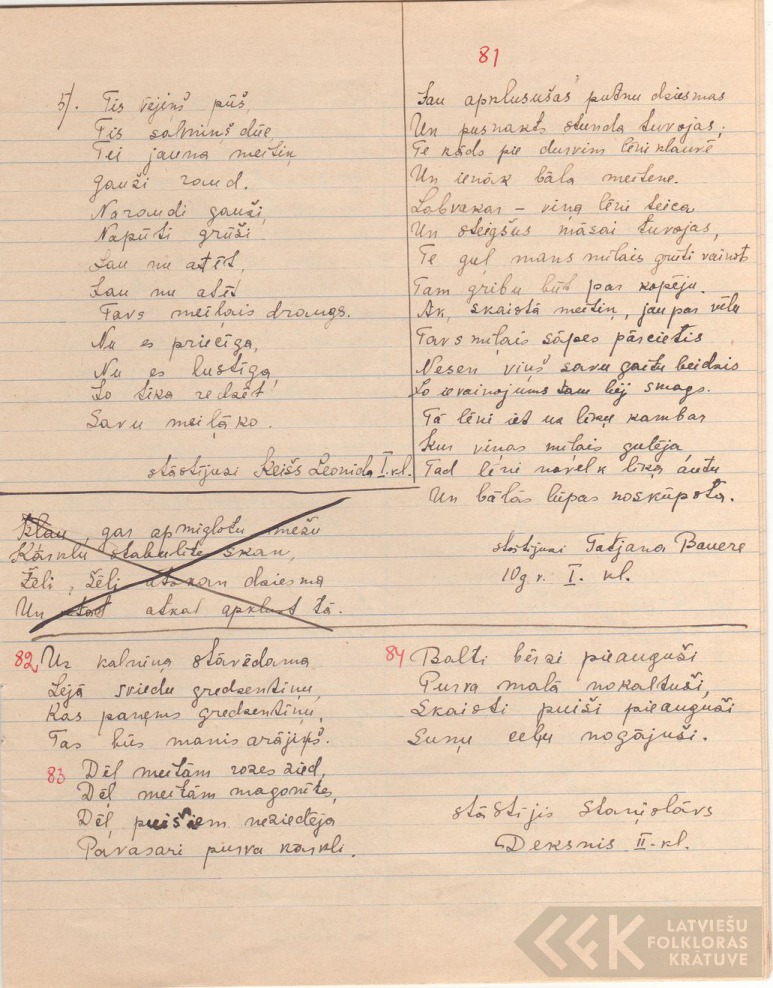 5). Tis vējiņš pūš,
Tis salniņš dūc,
Tei jauna meitiņ
gauži raud.
Naraudi gauži,
Napūti grūši
Jau nu atēt,
Jau nu atēt
Tavs meilais draugs.
Nu es priecīga,
Nu es lustīga,
Jo tika redzēt
Savu meiļāko.
stāstījusi Keišs Leonida I. kl.
81
Jau apklusušas putnu dziesmas
Un pusnakts stunda tuvojas,
Te kāds pie durvim lēni klauvē
Un ienāk bāla meitene.
Labvakar – viņa lēni teica
Un steigšus māsai tuvojas,
Te guļ mans mīlais grūti vainots
Tam gribu būt par kopēju.
Ak, skaistā meitiņ, jau par vēlu
Tavs mīļais sāpes pārcietis
Nesen viņš savu gaitu beidzis
Jo ievainojums tam bij smags.
Tā lēni iet uz līķu kambar
Kur viņas mīļais gulēja
Tad lēni novelk līķa autu
Un bālās lūpas noskūpsta.
stāstījusi Tatjana Bauere
10 g. v. I. kl.
Klau, gar apmiglotu mežu
Kārklu stabulīte skan,
Žēli, žēli atskan dziesma
Un atkal apklust tā.
82 Uz kalniņa stāvēdama
Lejā sviedu gredzentiņu,
Kas paņems gredzentiņu,
Tas būs manis arājiņš.
83 Dēļ meitām rozes zied,
Dēļ meitām magonītes,
Dēļ puišiem neziedēja
Pavasari purva kārkli.
84 Balti bērzi pieauguši
Purva malā nokaltuši,
Skaisti puiši pieauguši
Suņu ceļu nogājuši.
stāstījis Staņislāvs
Deksnis II. kl.
LATVIEŠU
FOLKLORAS
KRĀTUVE